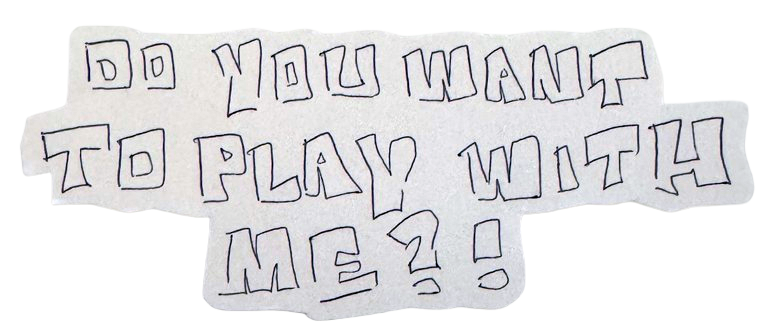 DO YOU WANT
TO PLAY WITH
ME?!